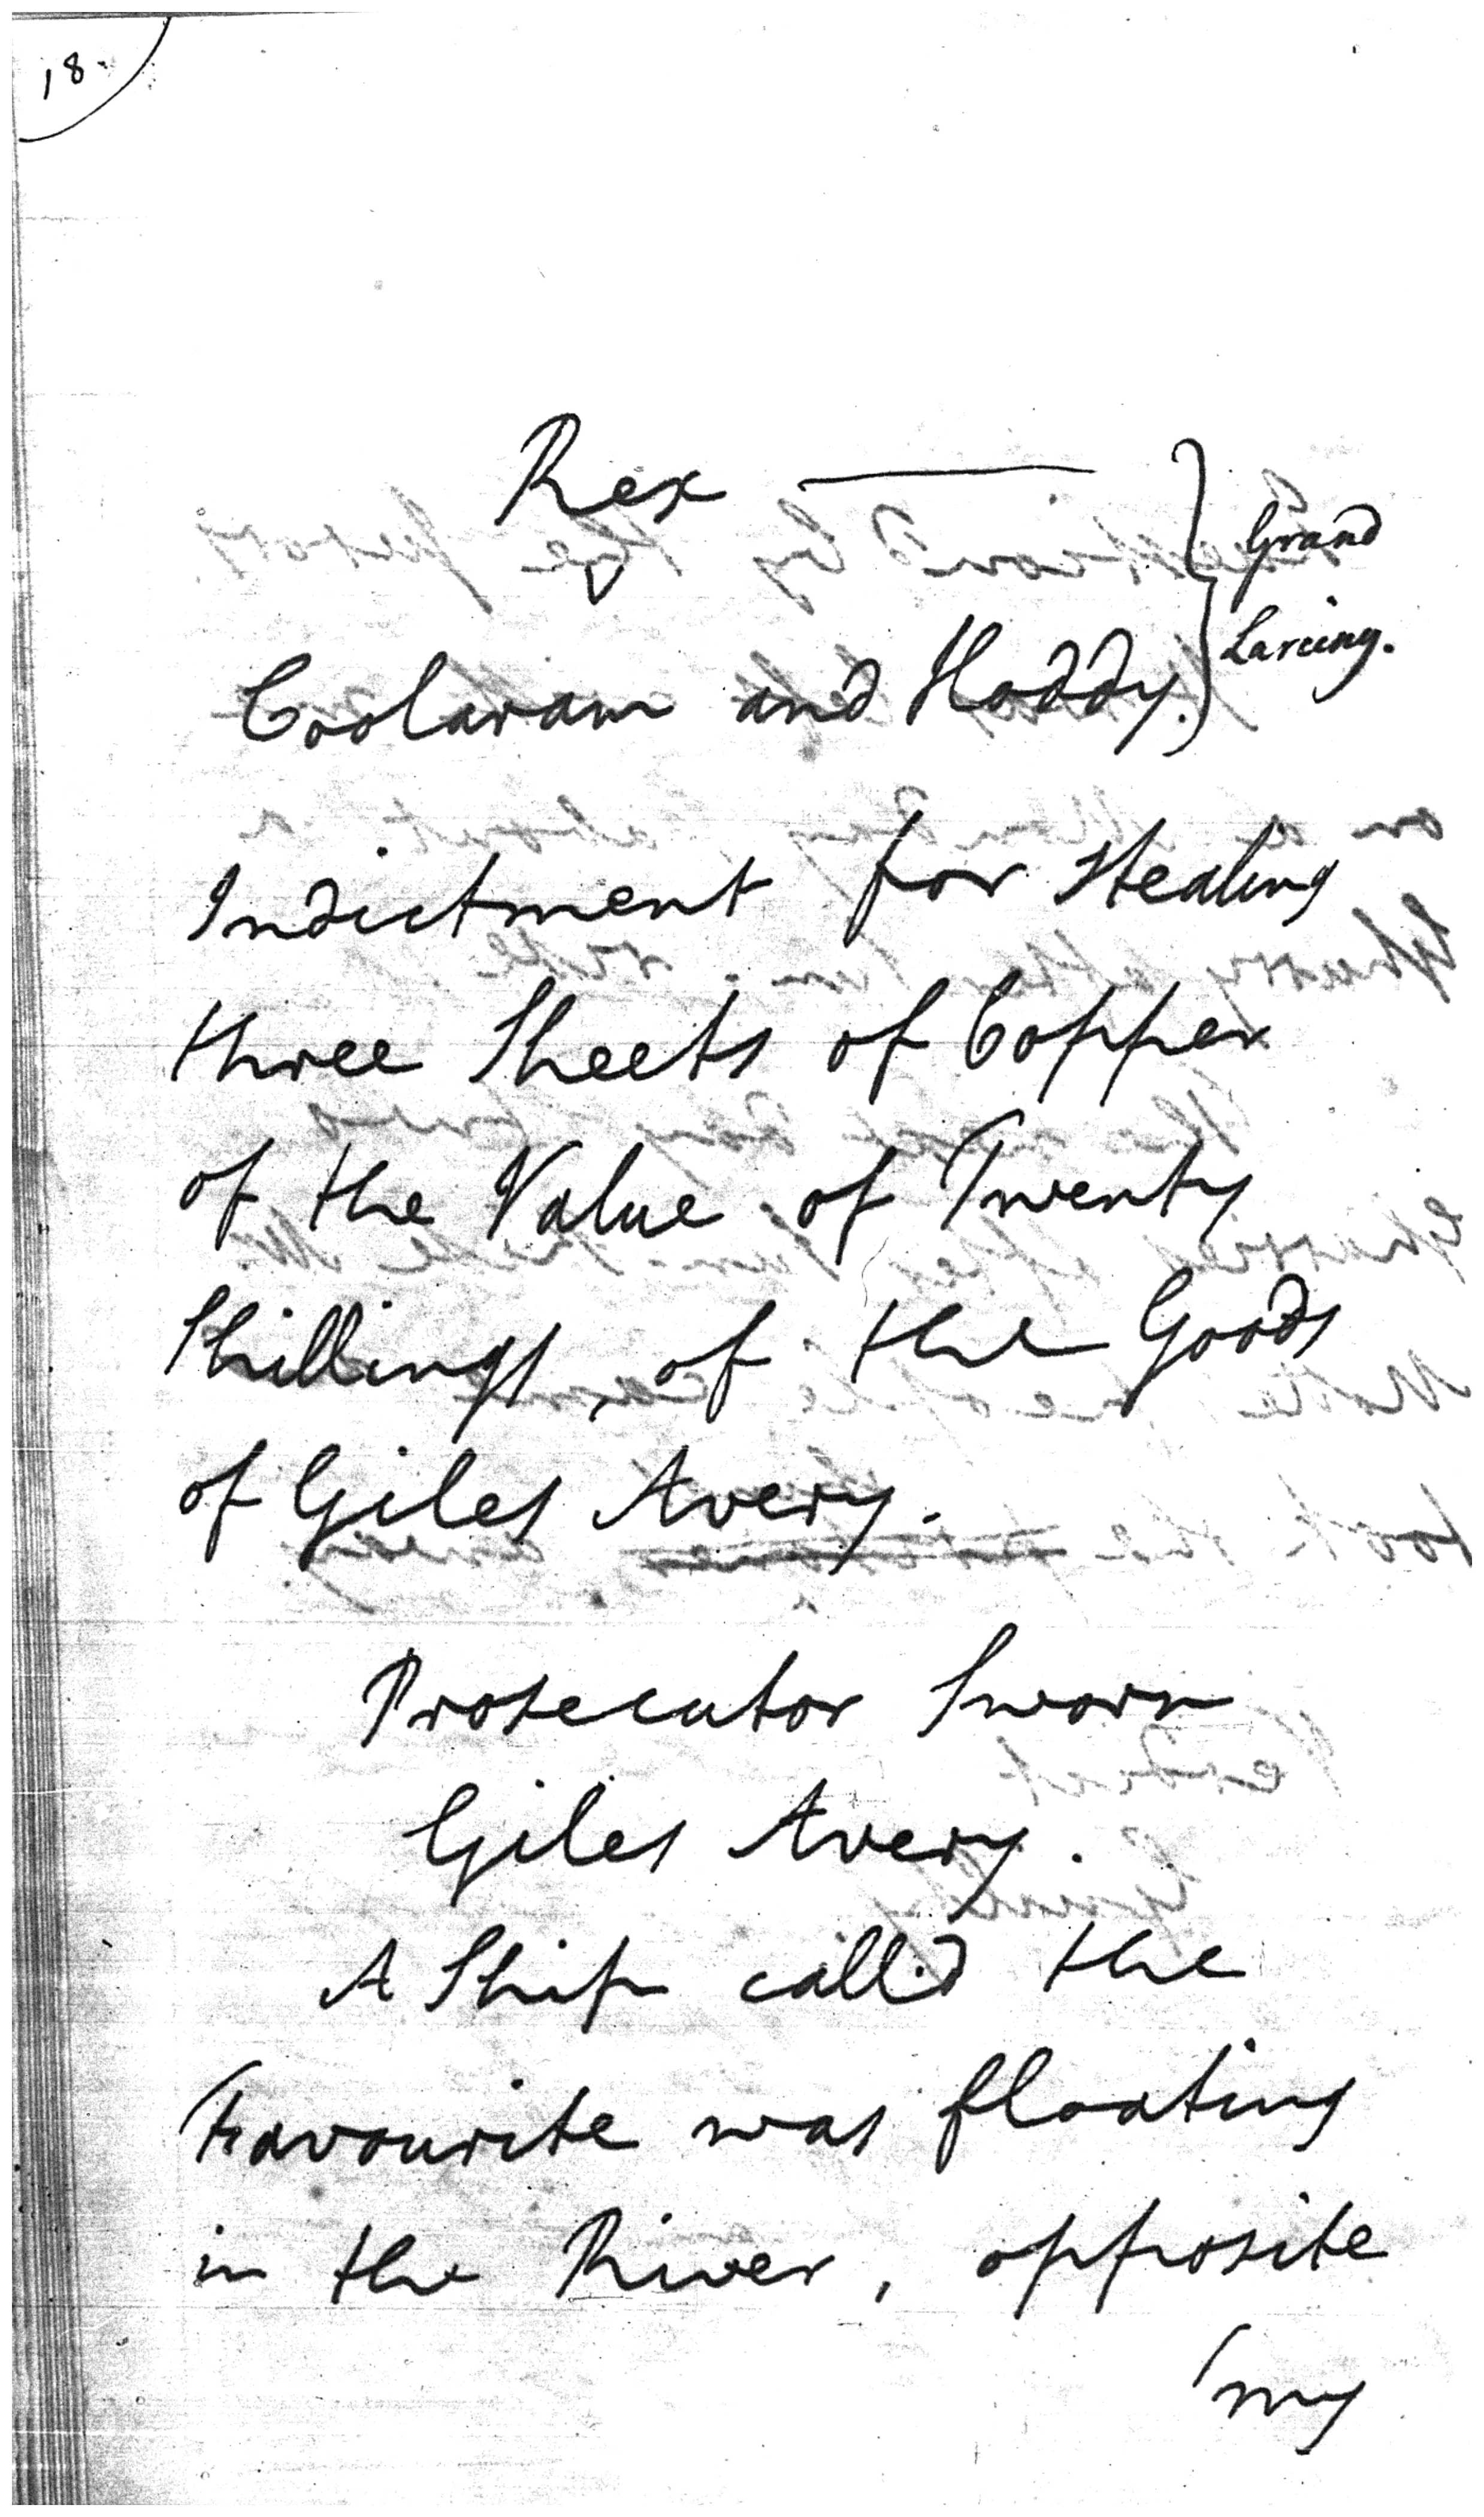 18.
Rex ——— } Grand
v
Coolaram and Hoddy. } Larceny.
Indictment for Stealing
three Sheets of Copper
of the Value of Twenty
Shillings, of the Goods
of Giles Avery.
Prosecutor Sworn
Giles Avery.
A Ship call.d the
Favourite was floating
in the River, opposite
my